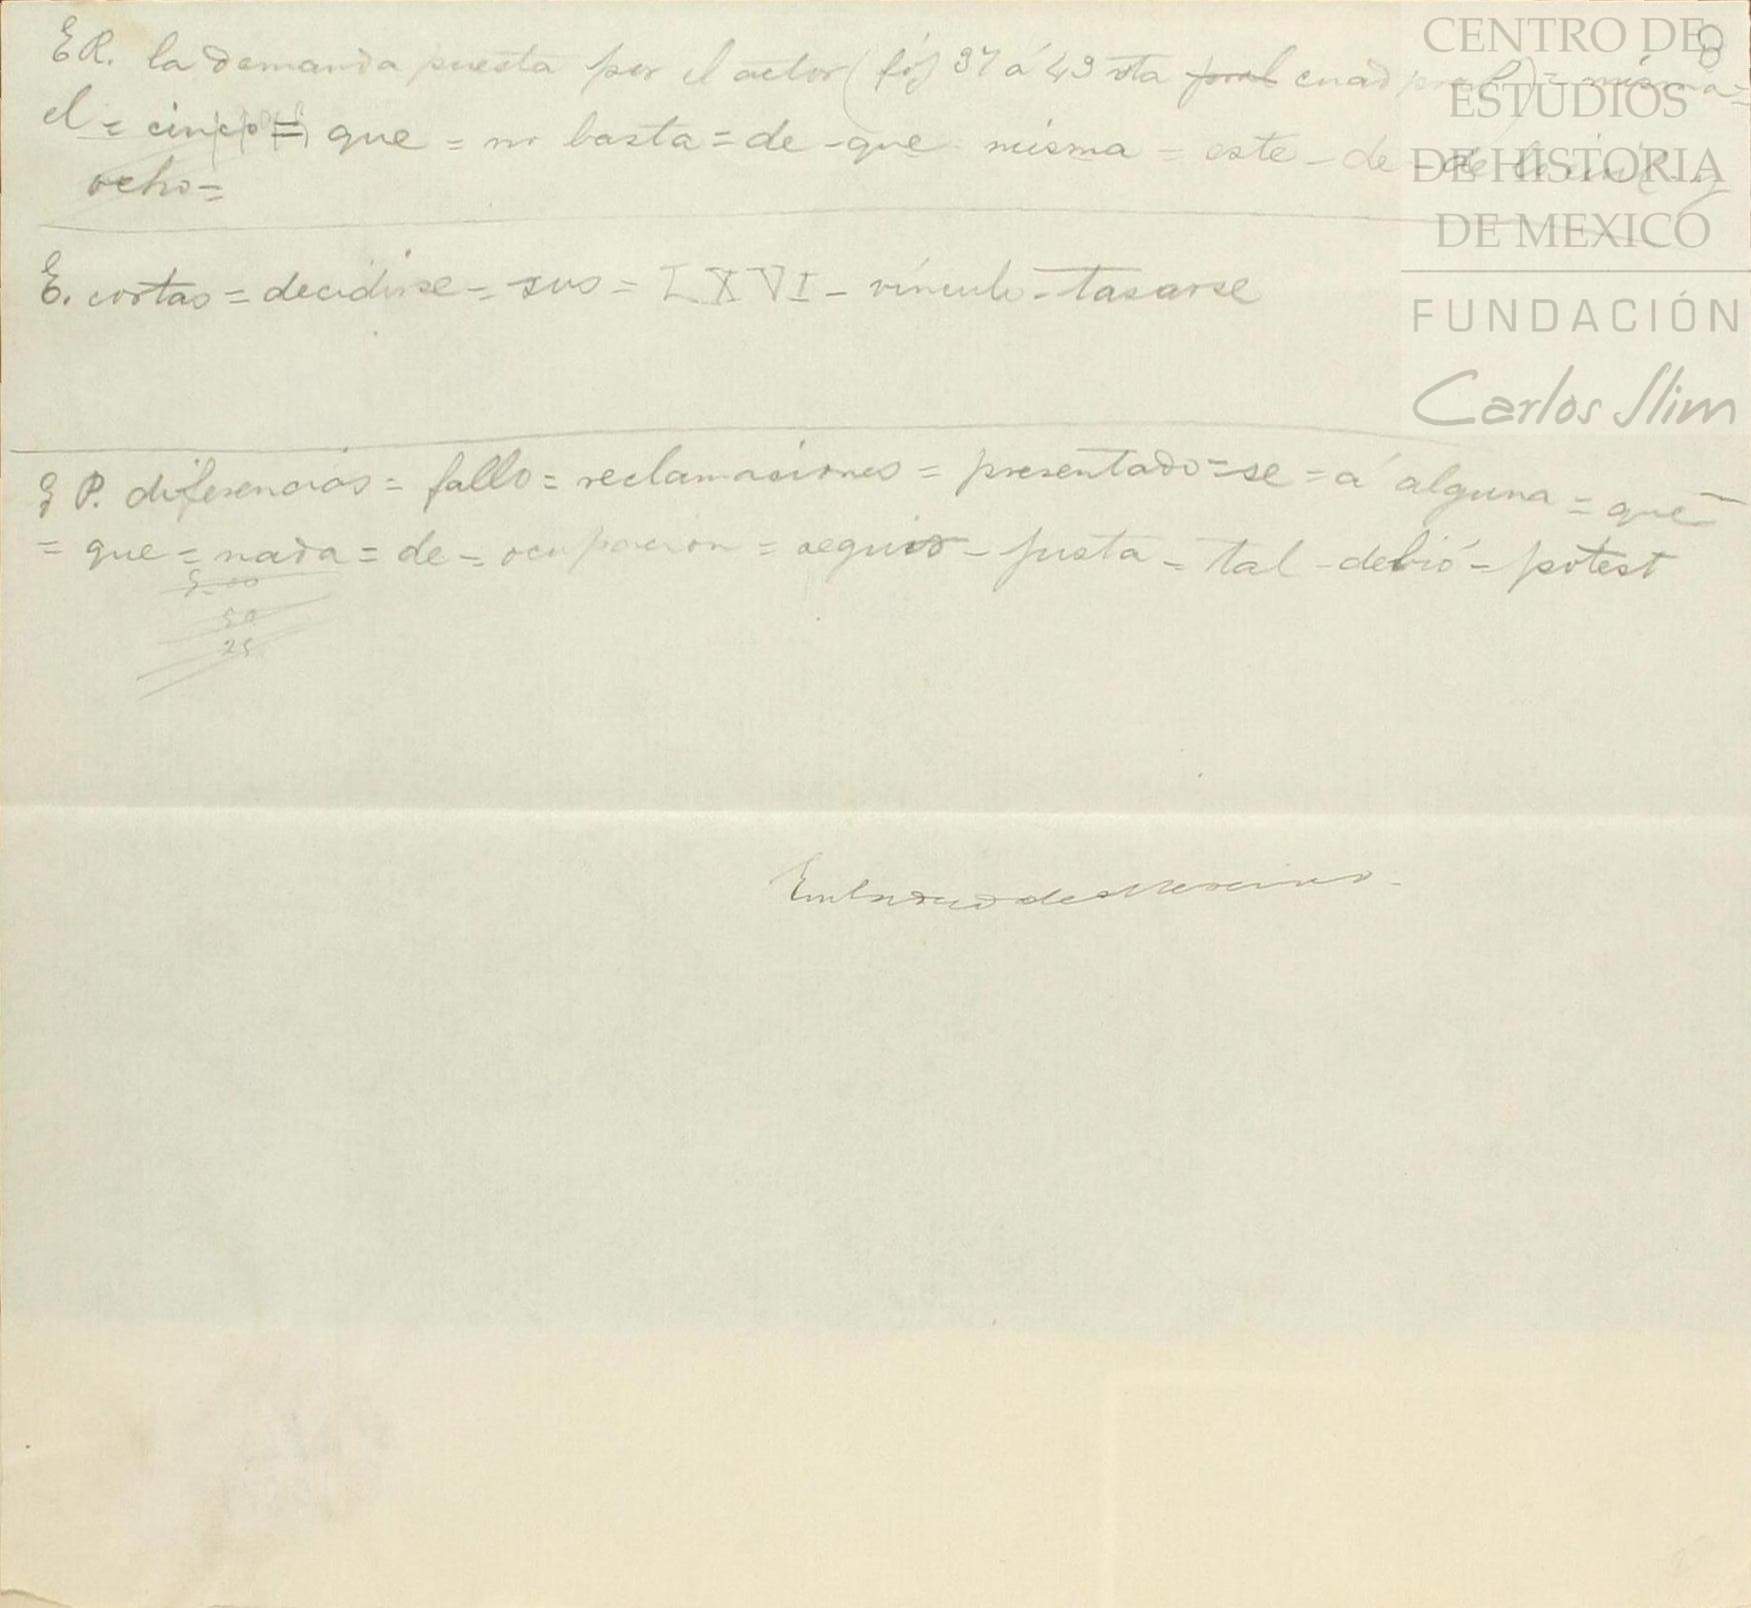 8
ER. la demanda puesta por el actor (fój 37 á 43 vta pral cuad pral) = misma =
el = cinco = que = no basta = de - que misma = este - de - de la
ocho =
E. costas = decidirse = sus = LXVI - vínculo - tasarse
E P. diferencias = fallo = reclamaciones = presentado = se = á alguna = que
= que = nada = de = ocupación = seguido - justa - tal - debió - potest
50
25
CENTRO DE
ESTUDIOS
DE HISTORIA
DE MEXICO
FUNDACIÓN
Carlos Slim